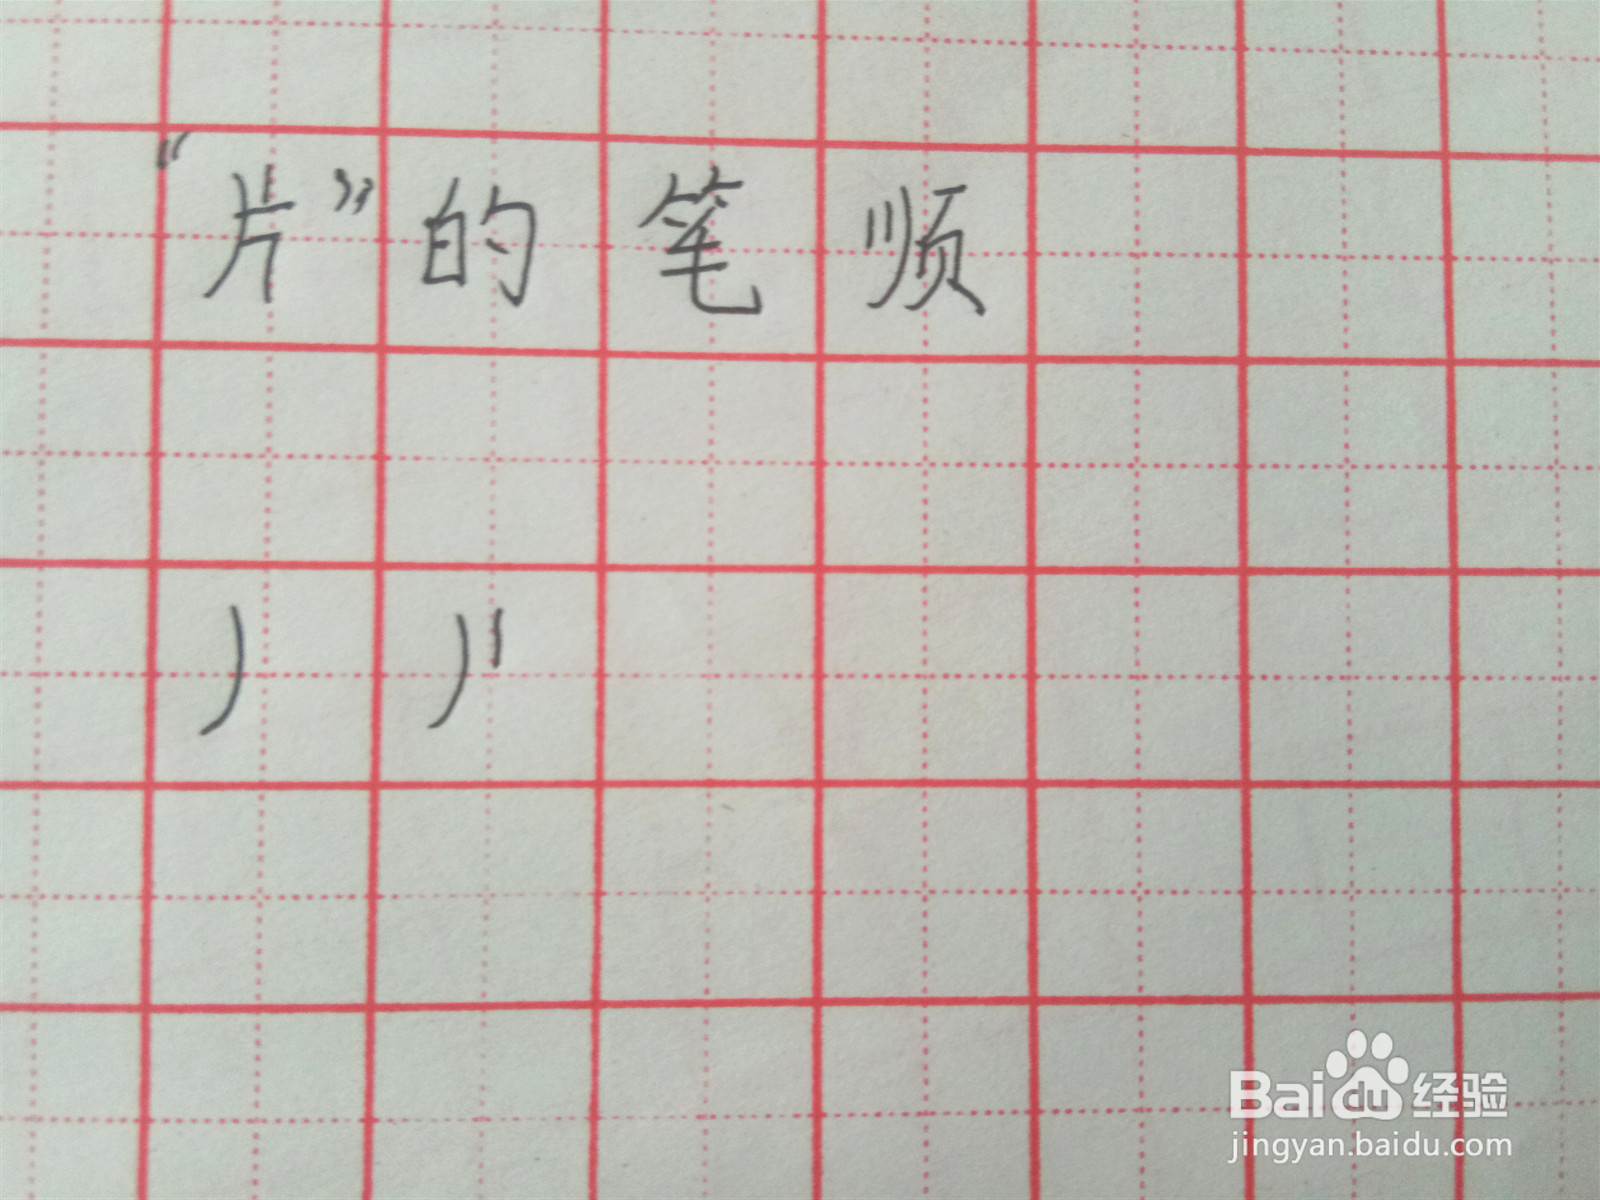 “片”的笔顺
丿 丿丨
Baidu 经验
jingyan.baidu.com